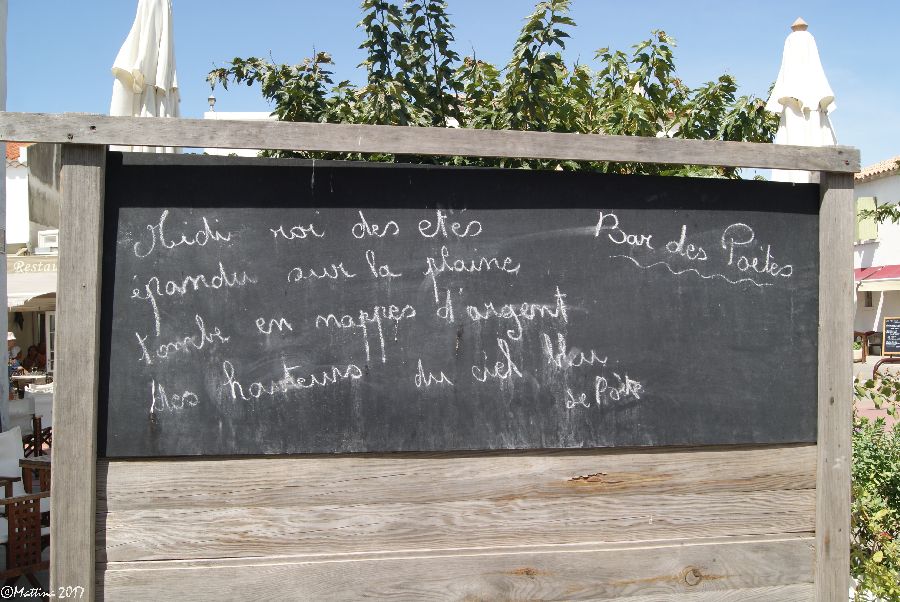 Midi roi des etés
épandu sur la plaine
tombe en nappes d'argent
des hauteurs du ciel bleu
de Poète
Bar des Poètes
Restau
©Mattini 2017